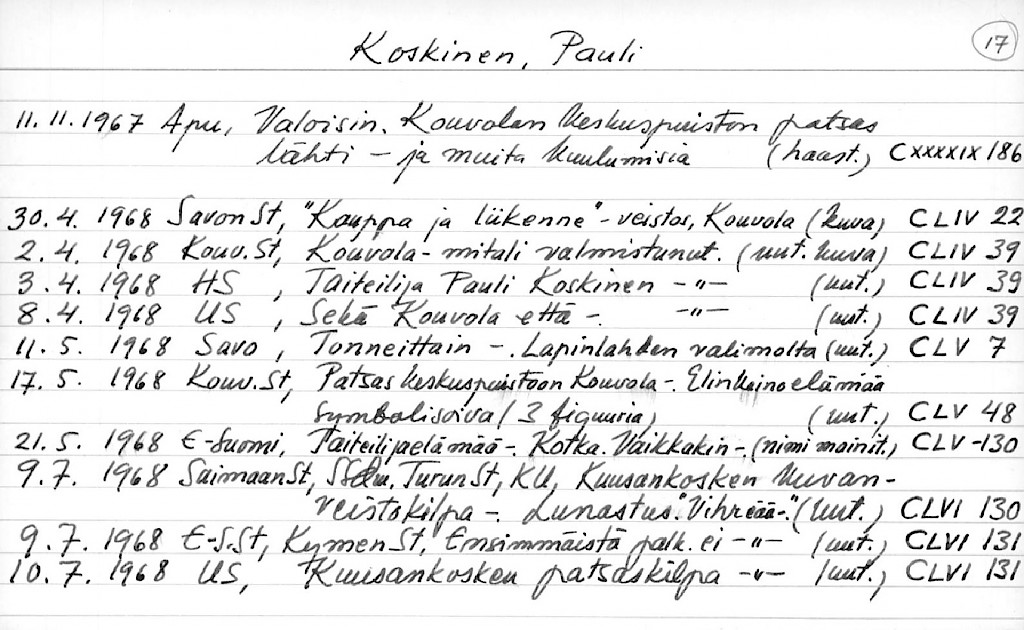 Koskinen, Pauli
17
11.11.1967 Apu, Valoisin. Kouvolan keskuspuiston patsas
lähti – ja muita kuulumisia (haast.) CXXXXIX 186
30.4. 1968 SavonSt, "Kauppa ja liikenne"-veistos, Kouvola (kuva) CLIV 22
2.4. 1968 Kouv.St, Kouvola-mitali valmistunut. (uut. kuva) CLIV 39
3.4. 1968 HS, Taiteilija Pauli Koskinen –"– (uut.) CLIV 39
8.4. 1968 US, Sekä Kouvola että –. –"– (uut.) CLIV 39
11.5. 1968 Savo, Tonneittain –. Lapinlahden valimolta (uut.) CLV 7
17.5. 1968 Kouv.St, Patsas keskuspuistoon Kouvola –. Elinkeinoelämää
symbolisoiva / 3 figuuria) (uut.) CLV 48
21.5. 1968 E-Suomi, Taiteilijaelämää –. Kotka. Vaikkakin –. (nimi mainit.) CLV -130
9.7. 1968 SaimaanSt, TurunSt, KU, Kuusankosken kuvan-
veistokilpa –. Lunastus. "Vihreää-." (uut.) CLVI 130
9.7. 1968 E-S.St, KymenSt, Ensimmäistä palk. ei –"– (uut.) CLVI 131
10.7. 1968 US, Kuusankosken patsaskilpa –"– (uut.) CLVI 131